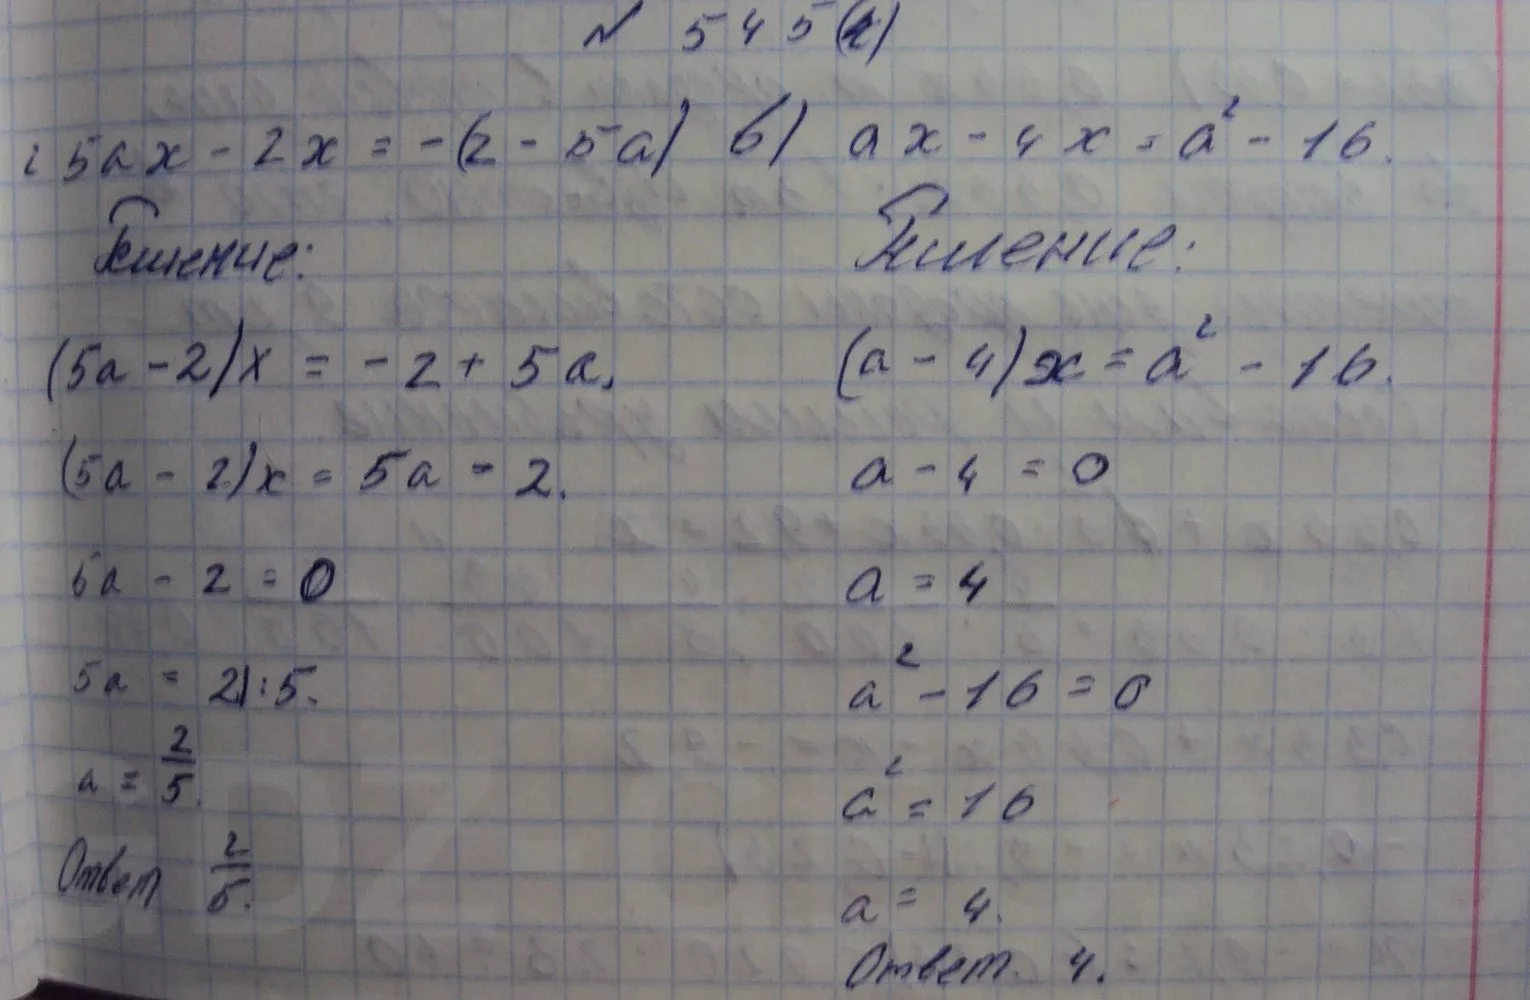 № 545(2)
г 5ax - 2x = -(2 - 5a)
Решение:
(5a - 2)x = -2 + 5a.
(5a - 2)x = 5a - 2.
5a - 2 = 0
5a = 2|:5.
a = 2/5.
Ответ 2/5.
в) ax - 4x = a² - 16.
Решение:
(a - 4)x = a² - 16.
a - 4 = 0
a = 4
a² - 16 = 0
a² = 16
a = 4.
Ответ. 4.